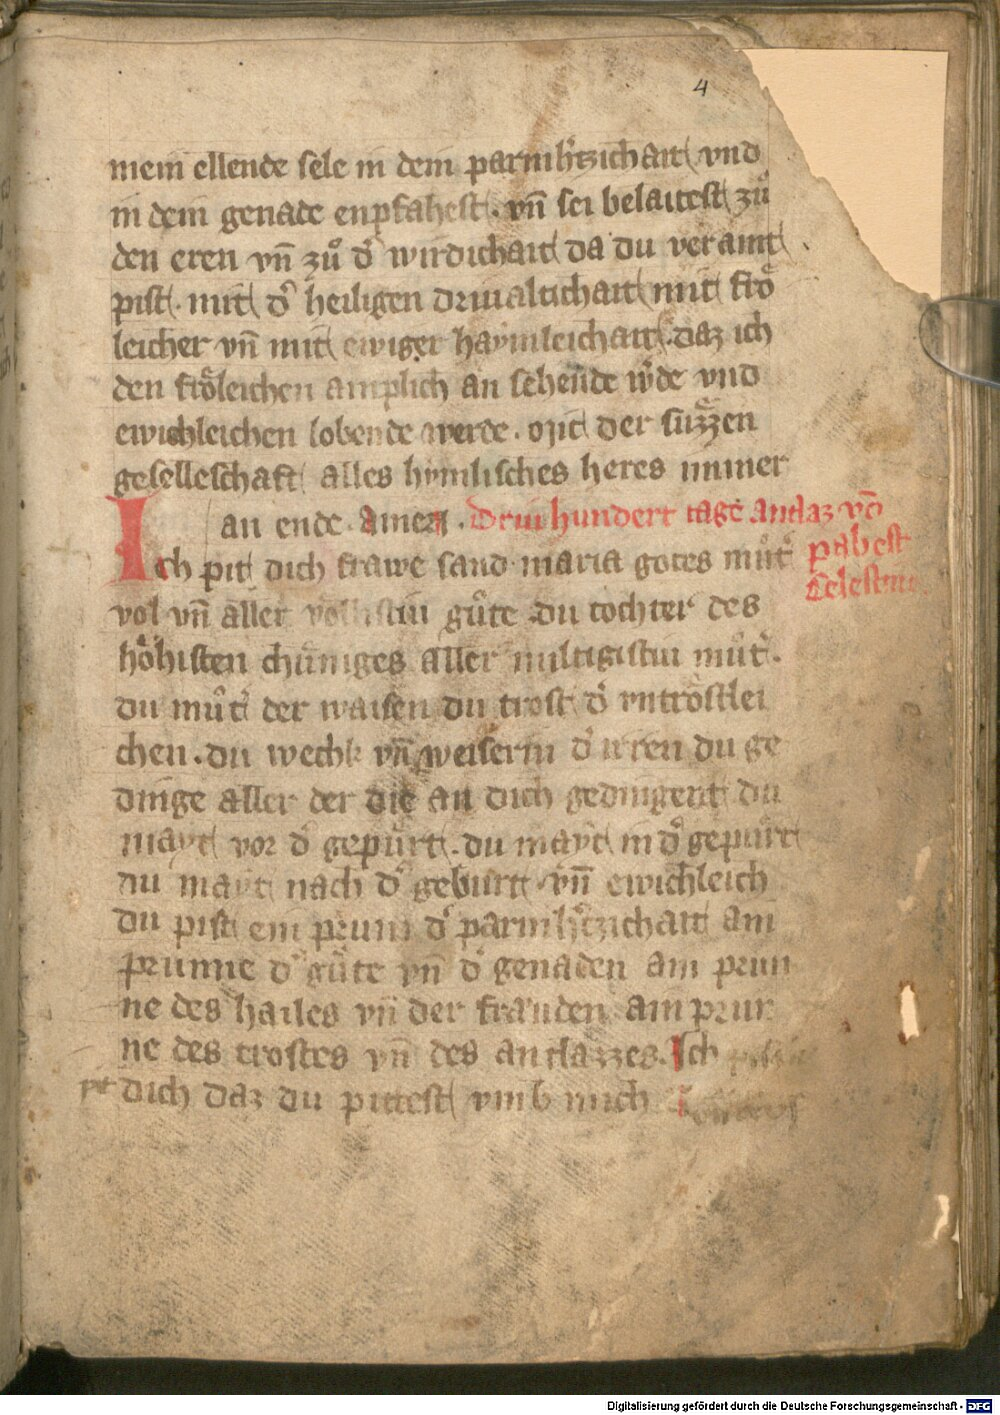 4
mein ellende sele in dein parmh͛tzichait vnd
in dein genade enpfahest. vn̄ sei belaitest zů
den eren vn̄ zů d͛ wirdichait da du veraint
pist. mit d͛ heiligen driualtichait mit frǒ
leicher vn̄ mit ewiger haymleichait. daz ich
den frǒleichen amplich an sehende w͛de vnd
ewichleichen lobende werde. mit der suzzen
geselleschaft alles hymlisches heres immer
an ende. amen. Driu hundert tage antlaz vō
pabest
Celestin
Ich pit dich frawe sand maria gotes můt͛
vol vn̄ aller vollistiu gůte du tochter des
hǒhisten chuniges aller miltigistiu můt͛.
du můt͛ der waisen du trost d͛ vntrostlei
chen. du wech vn̄ weiserin d͛ irren du ge
dinge aller der die an dich gedingent du
mayt vor d͛ gepurt. du mayt in d͛ gepurt
du mayt nach d͛ geburt vn̄ ewichleich
du pist ein prunn d͛ parmh͛tzichait ain
prunne d͛ gůte vn̄ d͛ genaden ain prun
ne des hailes vn̄ der frauden ain prun
ne des trostes vn̄ des antlazzes. Ich
pit dich daz du pittest vmb mich
Digitalisierung gefördert durch die Deutsche Forschungsgemeinschaft - DFG